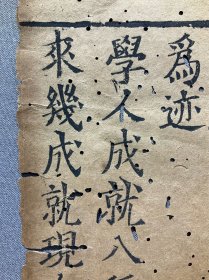 為迹
學人成就八
來幾成就現